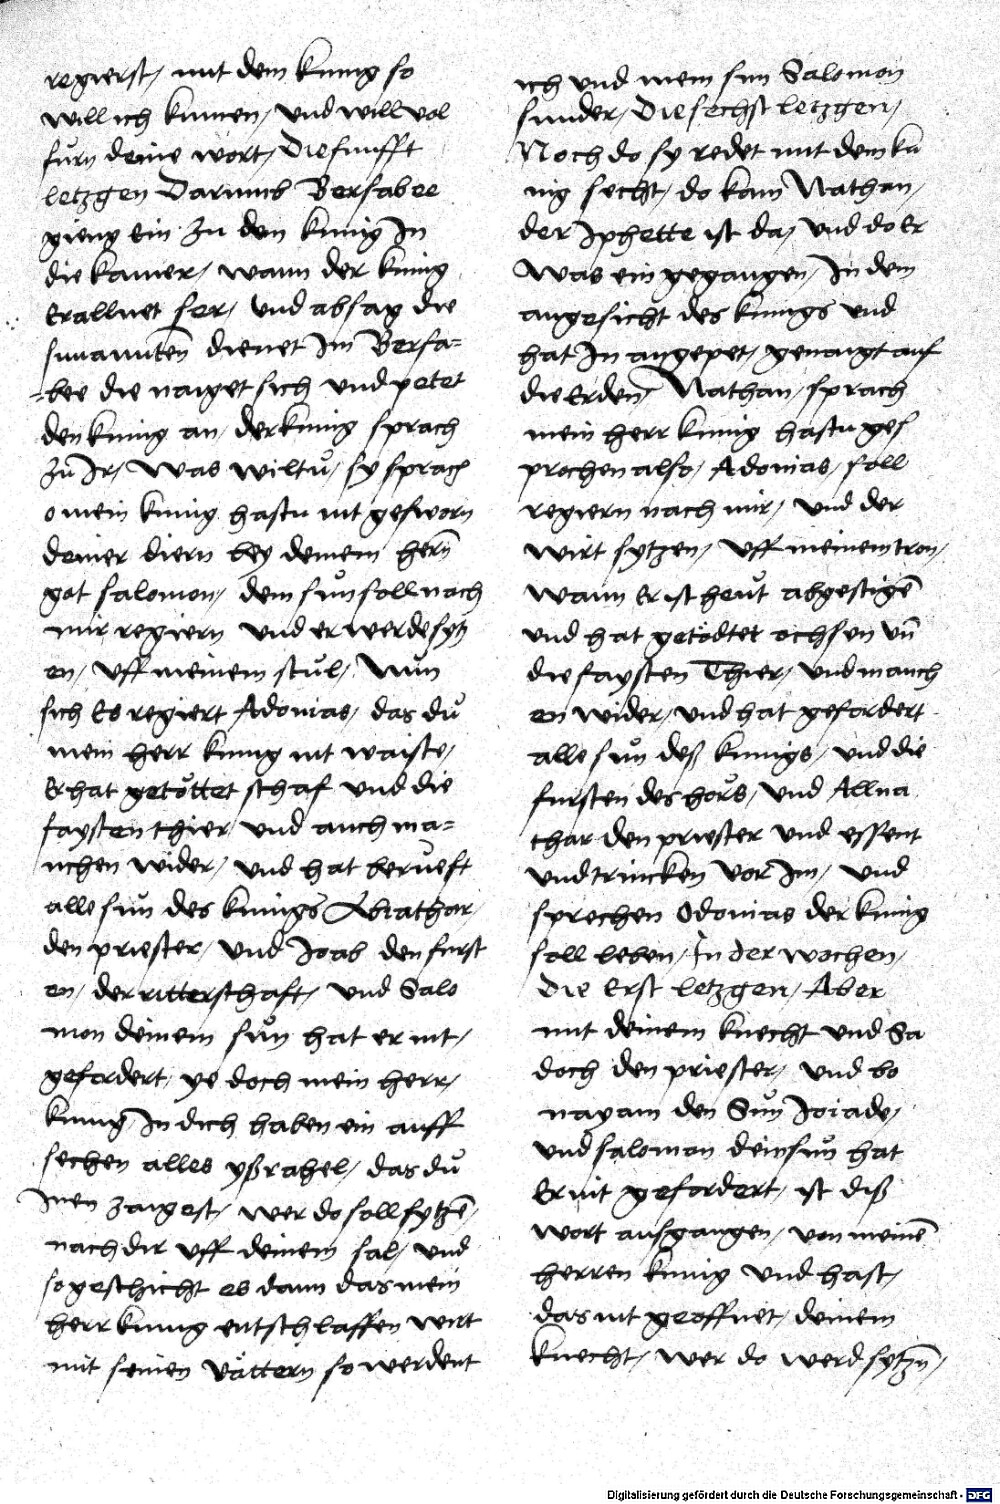 regierst / mit dem kunig so
will ich kumen / und will vol
fürn deine wort / Die funfft
letzgen Darumb Bersabee
gieng ein zu den kunig In
die kamer / wann der kunig
Erallnet ser / und absag die
sunamiten dienet Im Bersa=
bee die naiget sich und petet
den kunig an / der kunig sprach
zü Ir / Was wiltü / sy sprach
o mein kunig hastu nit gesworn
deiner diern bey deinem hern
got salomon / dein sün soll nach
mir regiern und er werde sytz
en / uff meinem stül / Nün
sich Es regiert Adonias / das dü
mein herr kunig nit waiste /
Er hat getöttet schaf und die
faysten thier / und auch ma=
nchen wider / und hat berüeft
alle sün des kunigs Abiathar /
den priester / und Joab den furst
en / der ritterschaft / und Salo
mon deinem sün hat er nit /
gefordert / ye doch mein herr /
kunig In dich haben ein auff
sechen alles yßrahel / das dü
Inen zaigest / wer do soll sytzen /
nach dir uff deinem sal / und
so geschicht es dann das mein
herr kunig entschlaffen wirt
mit seinen vättern so werdent
ich und mein sun Salomon
sunder / Die sechst letzgen /
Noch do sy redet mit dem ku
nig secht / do kam Nathan /
der Iphette ist da / und do Er
Was ein gegangen / In dem
angesicht des kunigs und
hat In angepet / genaigt auf
die Erden / Nathan / sprach
mein herr kunig hastu ges
prochen also / Adonias / soll
regiern nach mir / und der
wirt sytzen / uff meinem tron /
wann Er ist heüt abgestigen
und hat getödtet ochsen un
die faysten Thier / und manch
en wider / und hat gefordert
alle sün deß kunigs / und die
fursten des hörs / und Allna
thar den priester und essent
und trincken vor Im / und
sprechen Odonias der kunig
soll leben / In der wochen /
Die Erst letzgen / Aber
mit deinem knecht und Sa
doch den priester / und bo
nayam den Sün Joiade /
und salomon dein sün hat
Er nit gefordert / ist diß
wort ausgangen / von meinem
herren kunig und hast /
das nit geoffnet / deinem
knecht / wer do werd sytzen /
Digitalisierung gefördert durch die Deutsche Forschungsgemeinschaft - DFG